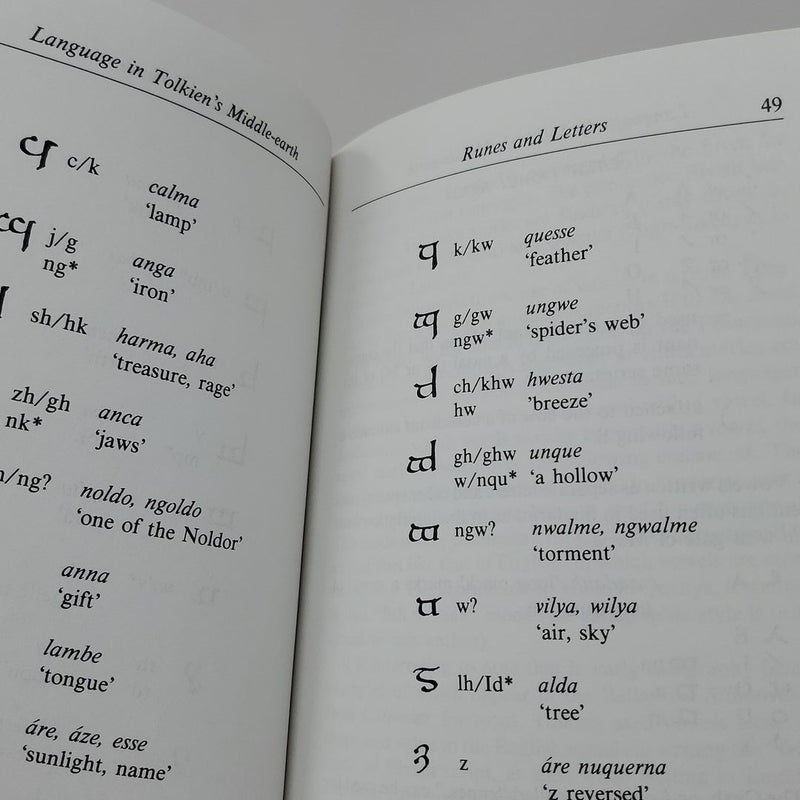 Language in Tolkien's Middle-earth
c/k calma
'lamp'
j/g anga
ng* 'iron'
sh/hk harma, aha
'treasure, rage'
zh/gh anca
nk* 'jaws'
/ng? noldo, ngoldo
'one of the Noldor'
anna
'gift'
lambe
'tongue'
áre, áze, esse
'sunlight, name'
Runes and Letters 49
k/kw quesse
'feather'
g/gw ungwe
ngw* 'spider's web'
ch/khw hwesta
hw 'breeze'
gh/ghw unque
w/nqu* 'a hollow'
ngw? nwalme, ngwalme
'torment'
w? vilya, wilya
'air, sky'
lh/Id* alda
'tree'
z áre nuquerna
'z reversed'